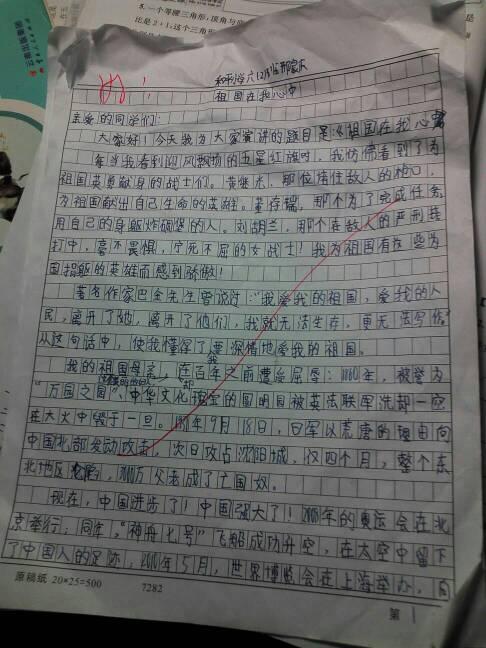 8.一个等腰三角形,顶角与
比是2:1,这个三角
祖国在我心中
亲爱的同学们:
大家好!今天我为大家演讲的题目是:《祖国在我心
每当我看到迎风飘扬的五星红旗时,我仿佛看到了为
祖国英勇献身的战士们。黄继光,那位堵住敌人的枪口,
为祖国献出自己生命的英雄。董存瑞,那个为了完成任务
用自己的身躯炸碉堡的人。刘胡兰,那个在敌人的严刑拷
打中,毫不畏惧,宁死不屈的女战士!我为祖国有这些为
国捐躯的英雄而感到骄傲!
著名作家巴金先生曾说过:“我爱我的祖国,爱我的人
民,离开了她,离开了他们,我就无法生存,更无法写作。”
从这句话中,使我懂得了要深情地爱我的祖国。
我的祖国母亲,在百年之前遭受屈辱:1860年,被誉为
“万园之园”、中华文化瑰宝的圆明园被英法联军洗却一空
在大火中毁于一旦。1931年9月18日,日军以荒唐的理由向
中国北部发动攻击,次日攻占沈阳城,仅四个月,整个东
北地区沦陷,3000万父老成了亡国奴。
现在,中国进步了!中国强大了!2008年的奥运会在北
京举行;同年,“神舟七号”飞船成功升空,在太空中留下
了中国人的足迹;2010年5月,世界博览会在上海举办,向
原稿纸 20×25=500
7282
第 1